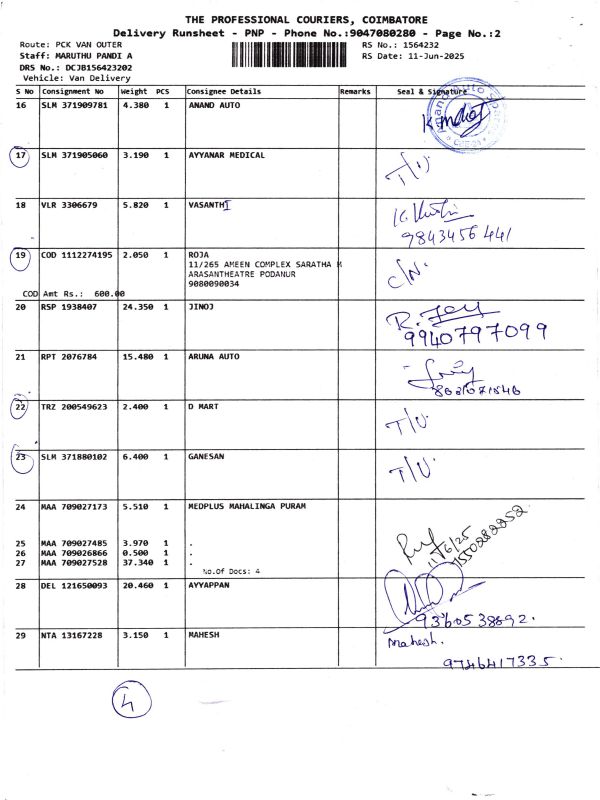 THE PROFESSIONAL COURIERS, COIMBATORE
Delivery Runsheet - PNP - Phone No.:9047080280 - Page No.:2
Route: PCK VAN OUTER RS No.: 1564232
Staff: MARUTHU PANDI A RS Date: 11-Jun-2025
DRS No.: DCJB156423202
Vehicle: Van Delivery
S No Consignment No Weight PCS Consignee Details Remarks Seal & Signature
16 SLM 371909781 4.380 1 ANAND AUTO
17 SLM 371905060 3.190 1 AYYANAR MEDICAL T/U
18 VLR 3306679 5.820 1 VASANTHI
9843456441
19 COD 1112274195 2.050 1 ROJA C/N.
11/265 AMEEN COMPLEX SARATHA M
ARASANTHEATRE PODANUR
9080090034
COD Amt Rs.: 600.00
20 RSP 1938407 24.350 1 JINOJ
9940797099
21 RPT 2076784 15.480 1 ARUNA AUTO
22 TRZ 200549623 2.400 1 D MART T/U.
23 SLM 371880102 6.400 1 GANESAN T/U.
24 MAA 709027173 5.510 1 MEDPLUS MAHALINGA PURAM
25 MAA 709027485 3.970 1 .
26 MAA 709026866 0.500 1 .
27 MAA 709027528 37.340 1 .
11/6/25
No.Of Docs: 4
28 DEL 121650093 20.460 1 AYYAPPAN
9360538892.
29 NTA 13167228 3.150 1 MAHESH Mahesh.
9746417335.
4